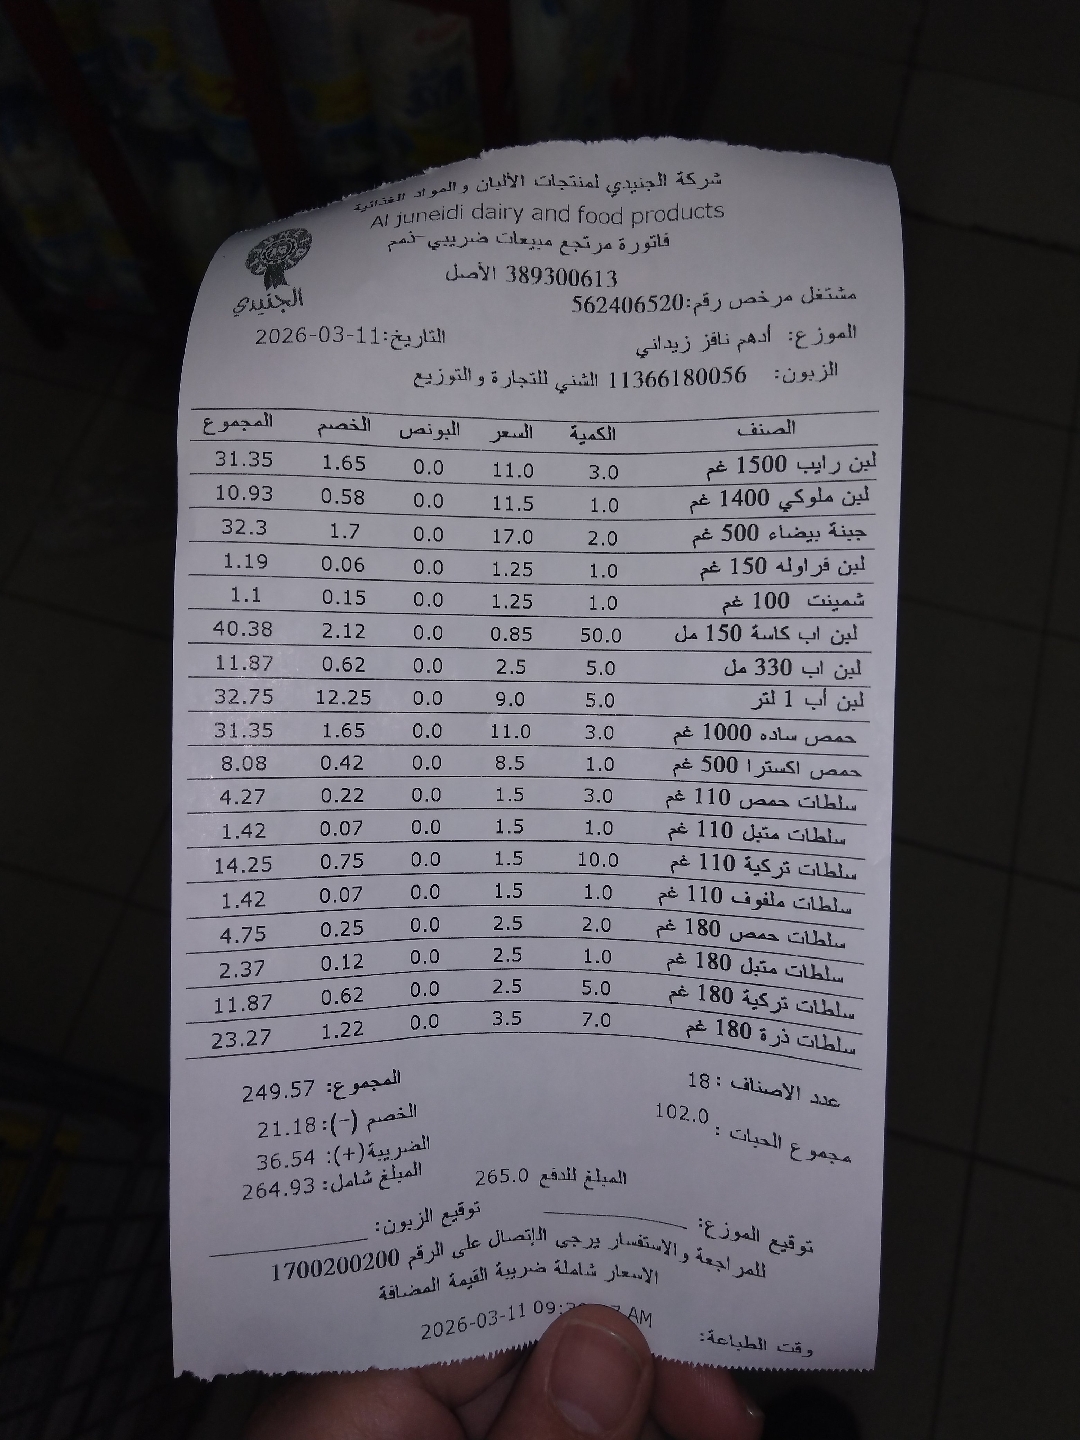 شركة الجنيدي لمنتجات الألبان والمواد الغذائية
Al juneidi dairy and food products
فاتورة مرتجع مبيعات ضريبي-ذمم
389300613 الأصل
الجنيدي
مشتغل مرخص رقم:562406520
الموزع: أدهم نافز زيداني التاريخ:2026-03-11
الزبون: 11366180056 الشني للتجارة والتوزيع
الصنف الكمية السعر البونص الخصم المجموع
لبن رايب 1500 غم 3.0 11.0 0.0 1.65 31.35
لبن ملوكي 1400 غم 1.0 11.5 0.0 0.58 10.93
جبنة بيضاء 500 غم 2.0 17.0 0.0 1.7 32.3
لبن فراوله 150 غم 1.0 1.25 0.0 0.06 1.19
شمينت 100 غم 1.0 1.25 0.0 0.15 1.1
لبن اب كاسة 150 مل 50.0 0.85 0.0 2.12 40.38
لبن اب 330 مل 5.0 2.5 0.0 0.62 11.87
لبن أب 1 لتر 5.0 9.0 0.0 12.25 32.75
حمص ساده 1000 غم 3.0 11.0 0.0 1.65 31.35
حمص اكسترا 500 غم 1.0 8.5 0.0 0.42 8.08
سلطات حمص 110 غم 3.0 1.5 0.0 0.22 4.27
سلطات متبل 110 غم 1.0 1.5 0.0 0.07 1.42
سلطات تركية 110 غم 10.0 1.5 0.0 0.75 14.25
سلطات ملفوف 110 غم 1.0 1.5 0.0 0.07 1.42
سلطات حمص 180 غم 2.0 2.5 0.0 0.25 4.75
سلطات متبل 180 غم 1.0 2.5 0.0 0.12 2.37
سلطات تركية 180 غم 5.0 2.5 0.0 0.62 11.87
سلطات ذرة 180 غم 7.0 3.5 0.0 1.22 23.27
عدد الاصناف : 18 المجموع: 249.57
مجموع الحبات : 102.0 الخصم (-): 21.18
الضريبة(+): 36.54
المبلغ للدفع 265.0 المبلغ شامل: 264.93
توقيع الموزع: توقيع الزبون:
للمراجعة والاستفسار يرجى الإتصال على الرقم 1700200200
الاسعار شاملة ضريبة القيمة المضافة
وقت الطباعة: 2026-03-11 AM